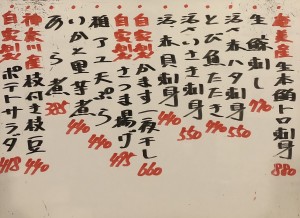 奄美産生本鮪トロ刺身 880
生鯵刺し 770
活〆ハタ刺身 550
とび魚たたき 440
活〆いさき刺身 550
活〆赤貝刺身 440
自家製かます一夜干し 660
自家製さつま揚げ 495
稚アユ天ぷら 440
いかと里芋煮 440
あら煮 385
神奈川産枝付き枝豆 440
自家製ポテトサラダ 418